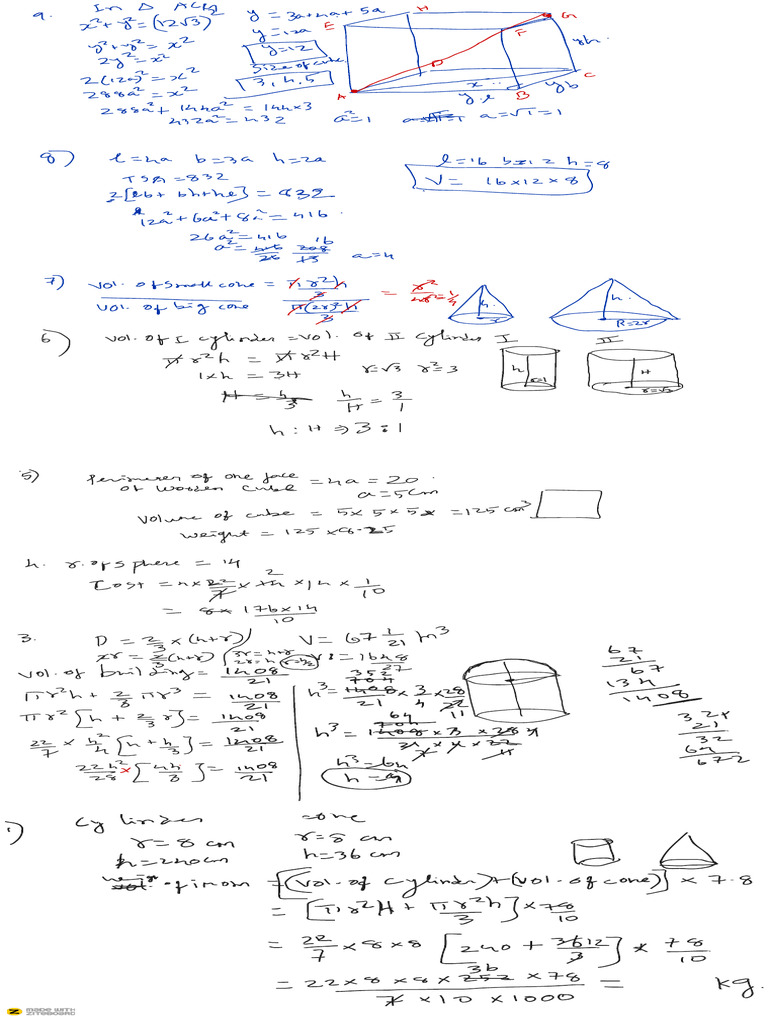 9. In △ ACG
x² + y² = (12√3)²
y² + y² = x²
2y² = x²
2(12a)² = x²
288a² = x²
288a² + 144a² = 144×3
432a² = 432 a² = 1 a = √1 = 1
y = 3a+4a+5a
y = 12a
y = 12
Size of cube
3, 4, 5
E H G F A D B C
x y.h y.l y b
8) l = 4a b = 3a h = 2a
TSA = 832
2[lb + bh + hl] = 832
12a² + 6a² + 8a² = 416
26a² = 416
a² = 416/26 208/13 16 a = 4
l = 16 b = 12 h = 8
V = 16 × 12 × 8
7) Vol. of small cone / Vol. of big cone = (πr²h/3) / (π(2r)²h/3) = r²/4r² = 1/4
h h R=2r
6) Vol. of I cylinder = Vol. of II cylinder I II
πr²h = πr²H
1×h = 3H r = √3 r² = 3
H = h/3 h/H = 3/1
h : H ⇒ 3 : 1
h r=1 H r=√3
5) Perimeter of one face
of wooden cube = 4a = 20
a = 5cm
Volume of cube = 5 × 5 × 5 = 125 cm³
weight = 125 × 8.25
4. r. of sphere = 14
Cost = 4 × 22/7 × 14 × 14 × 1/10
= 8 × 176×14/10
3. D = 2/3 × (h+r) V = 67 1/21 m³
2r = 2/3 (h+r) 3r = h+r
2r = h r = h/2
Vol. of building = 1408/21
πr²h + 2/3 πr³ = 1408/21
πr²[h + 2/3 r] = 1408/21
22/7 × h²/4 [h + h/3] = 1408/21
22h²/28 × [4h/3] = 1408/21
h³ = 1408/21 × 3/4 × 28/22
h³ = 1408 × 3 × 28 / 21 × 4 × 22
h³ = 64
h = 4
67
21
67
134
1408
32×
21
32
64
672
1) Cylinder Cone
r = 8 cm r = 8 cm
h = 240cm h = 36 cm
weight of iron = [(Vol. of cylinder) + (Vol. of cone)] × 7.8
= [πr²H + πr²h/3] × 78/10
= 22/7 × 8 × 8 [240 + 36 12/3] × 78/10
= 22 × 8 × 8 × 252 36 × 78 / 7 × 10 × 1000 = kg.
MADE WITH
ZITEBOARD